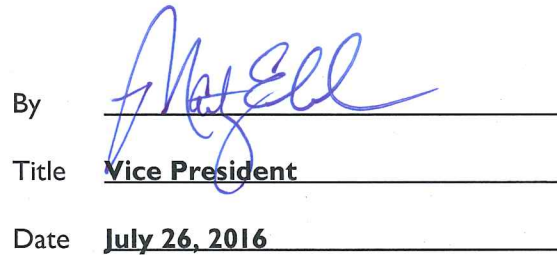 By
Title Vice President
Date July 26, 2016